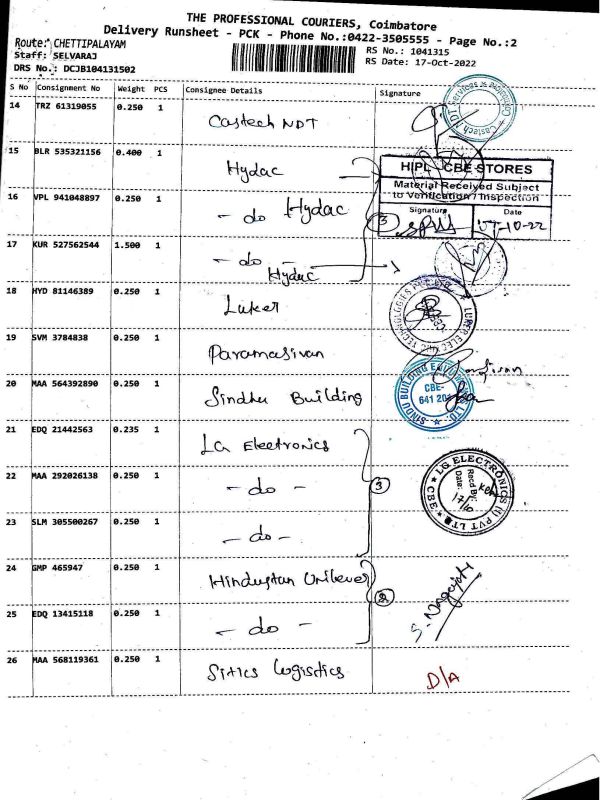 THE PROFESSIONAL COURIERS, Coimbatore
Delivery Runsheet - PCK - Phone No.:0422-3505555 - Page No.:2
Route: CHETTIPALAYAM
RS No.: 1041315
Staff: SELVARAJ
RS Date: 17-Oct-2022
DRS No.: DCJB104131502
S No Consignment No Weight PCS Consignee Details Signature
14 TRZ 61319055 0.250 1 Castech NDT
15 BLR 535321156 0.400 1 Hydac
HIPL CBE STORES
Material Received Subject
to Verification / Inspection
Signature Date
16 VPL 941048897 0.250 1 - do Hydac
3
17-10-22
17 KUR 527562544 1.500 1 - do - Hydac 1
18 HYD 81146389 0.250 1 Luker
19 SVM 3784838 0.250 1 Paramasivan
20 MAA 564392890 0.250 1 Sindhu Building
CBE-
641 201
21 EDQ 21442563 0.235 1 LG Electronics
22 MAA 292026138 0.250 1 - do - 3
LG ELECTRONICS (I) PVT LTD CBE
Recd By:
Date: 17/10
23 SLM 305500267 0.250 1 - do -
24 GMP 465947 0.250 1 Hindustan Unilever
2
25 EDQ 13415118 0.250 1 - do -
26 MAA 568119361 0.250 1 Sitics Logistics D/A